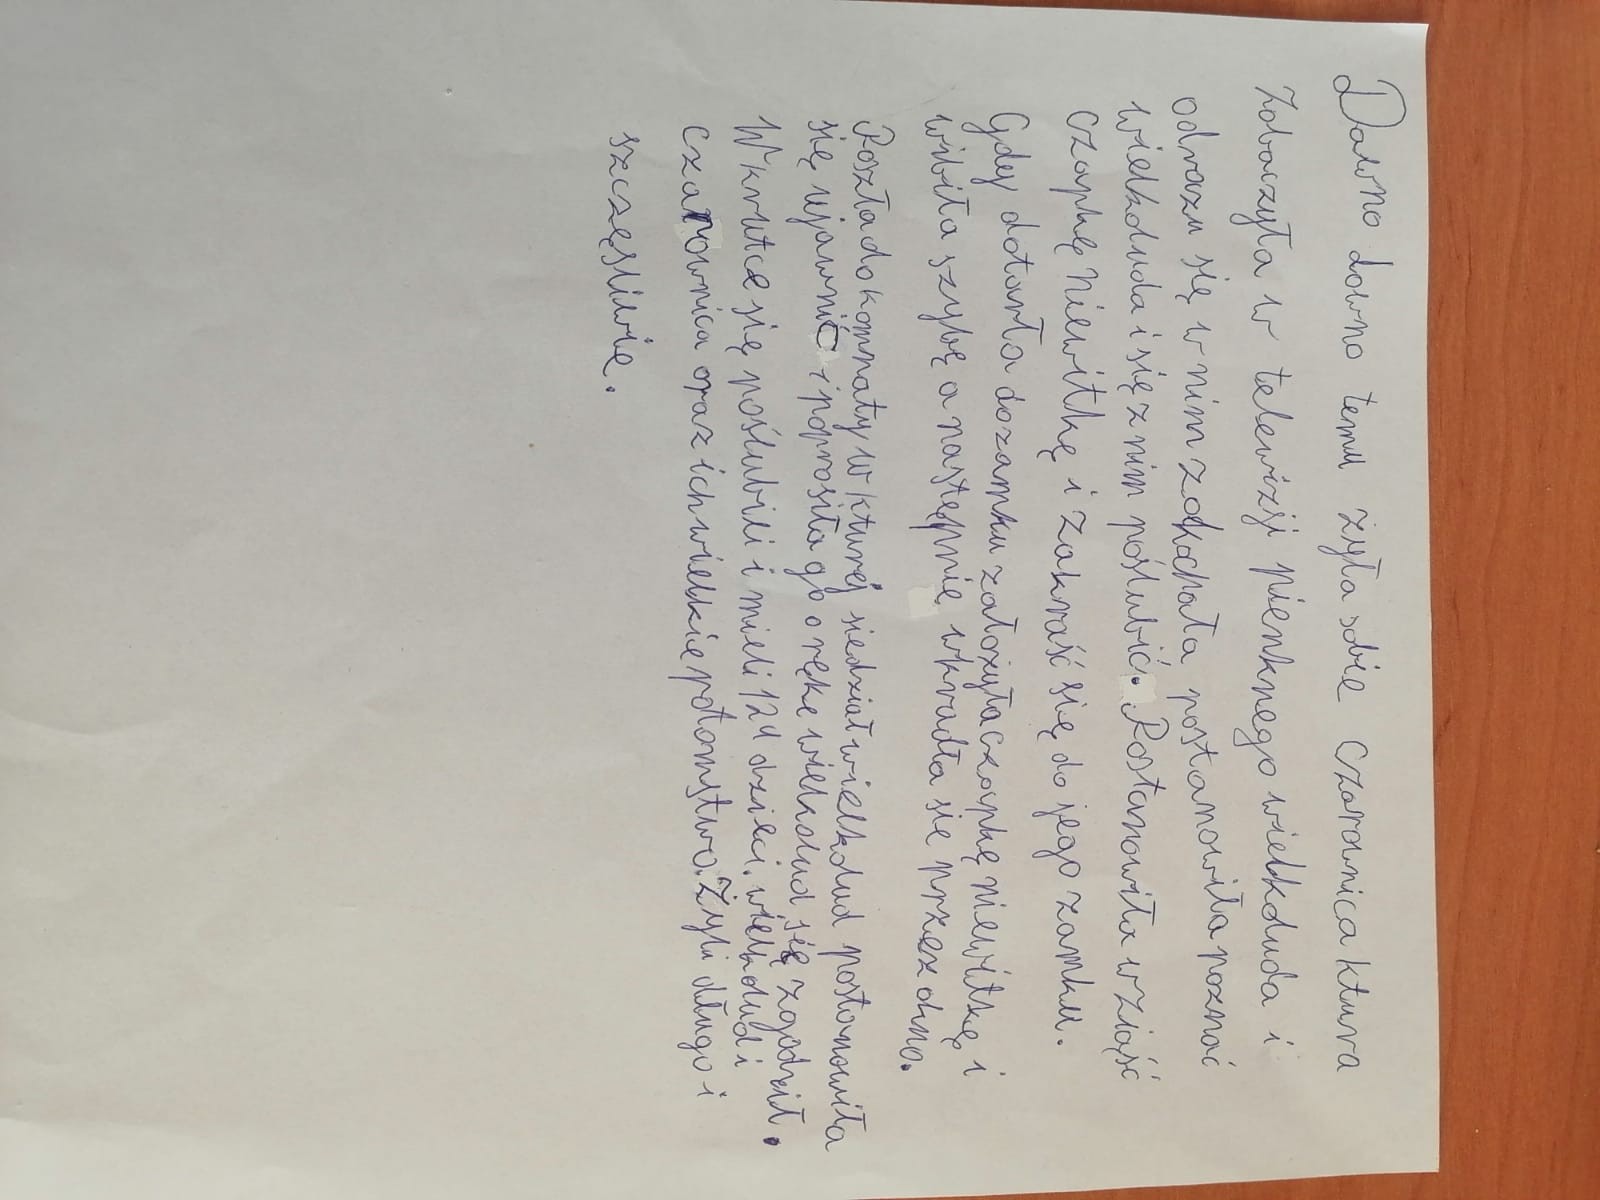 Dawno dawno temu żyła sobie czarownica ktura
Zobaczyła w telewizji pienknego wielkoluda i
odrazu się w nim zakochała postanowiła poznać
wielkoluda i się z nim poślubić. Postanowiła wziąść
czapkę niewitkę i zakraść się do jego zamku.
Gdy dotarła do zamku założyła czapkę niewitkę i
wibiła szybę a następnie wkradła się przez okno.
Poszła do komnaty w kturej siedział wielkolud postanowiła
się ujawnić i poprosiła go o rękę wielkolud się zgodził.
W krutce się poślubili i mieli 124 dzieci. wielkolud i
czarownica oraz ich wielkie potomstwo. Żyli długo i
szczęśliwie.